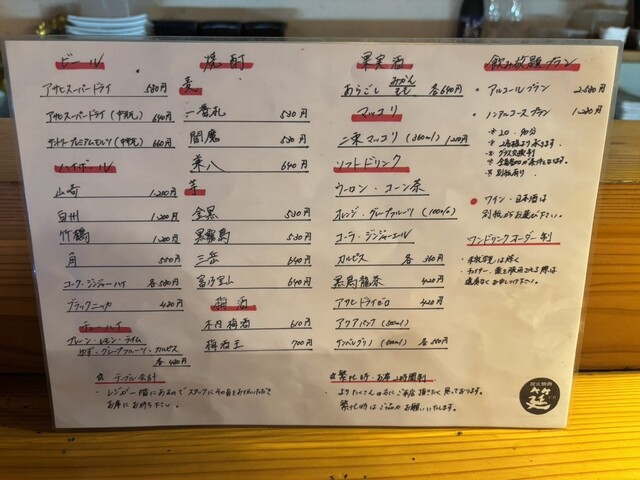 ビール
アサヒスーパードライ 580円
アサヒスーパードライ (中瓶) 640円
サントリープレミアムモルツ (中瓶) 660円
ハイボール
山崎 1,200円
白州 1,200円
竹鶴 1,200円
角 550円
コーク・ジンジャーハイ 各580円
ブラックニッカ 480円
チューハイ
プレーン・レモン・ライム
ゆず・グレープフルーツ・カルピス
各480円
☆ テーブル会計
・レジが一階にあるのでスタッフにその旨をお伝えいただき
お席にお待ち下さい。
焼酎
麦
一番札 530円
閻魔 530円
兼八 640円
芋
金黒 530円
黒霧島 530円
三岳 640円
富乃宝山 640円
梅酒
木内梅酒 610円
梅酒王 700円
果実酒
あらごし みかん もも 各640円
マッコリ
二東マッコリ (360ml) 1,200円
ソフトドリンク
ウーロン・コーン茶
オレンジ・グレープフルーツ (100%)
コーラ・ジンジャーエール
カルピス 各360円
黒烏龍茶 420円
アサヒドライゼロ 420円
アクアパンナ (500ml)
サンペレグリノ (500ml) 各550円
☆ 繁忙時・お席2時間制
よりたくさんの方にご来店頂きたく思っております。
繁忙時はご協力お願いいたします。
飲み放題プラン
・アルコールプラン 2,580円
・ノンアルコースプラン 1,280円
※ L.O. 90分
※ 2名様より承ります。
※ グラス交換制
※ 全員様の
※ 別紙あり
・ワイン・日本酒は
別紙からお選び下さい。
ワンドリンクオーダー制
・未就児は除く
・チェイサー、
遠慮なくお申しつけ下さい。
炭火焼鶏